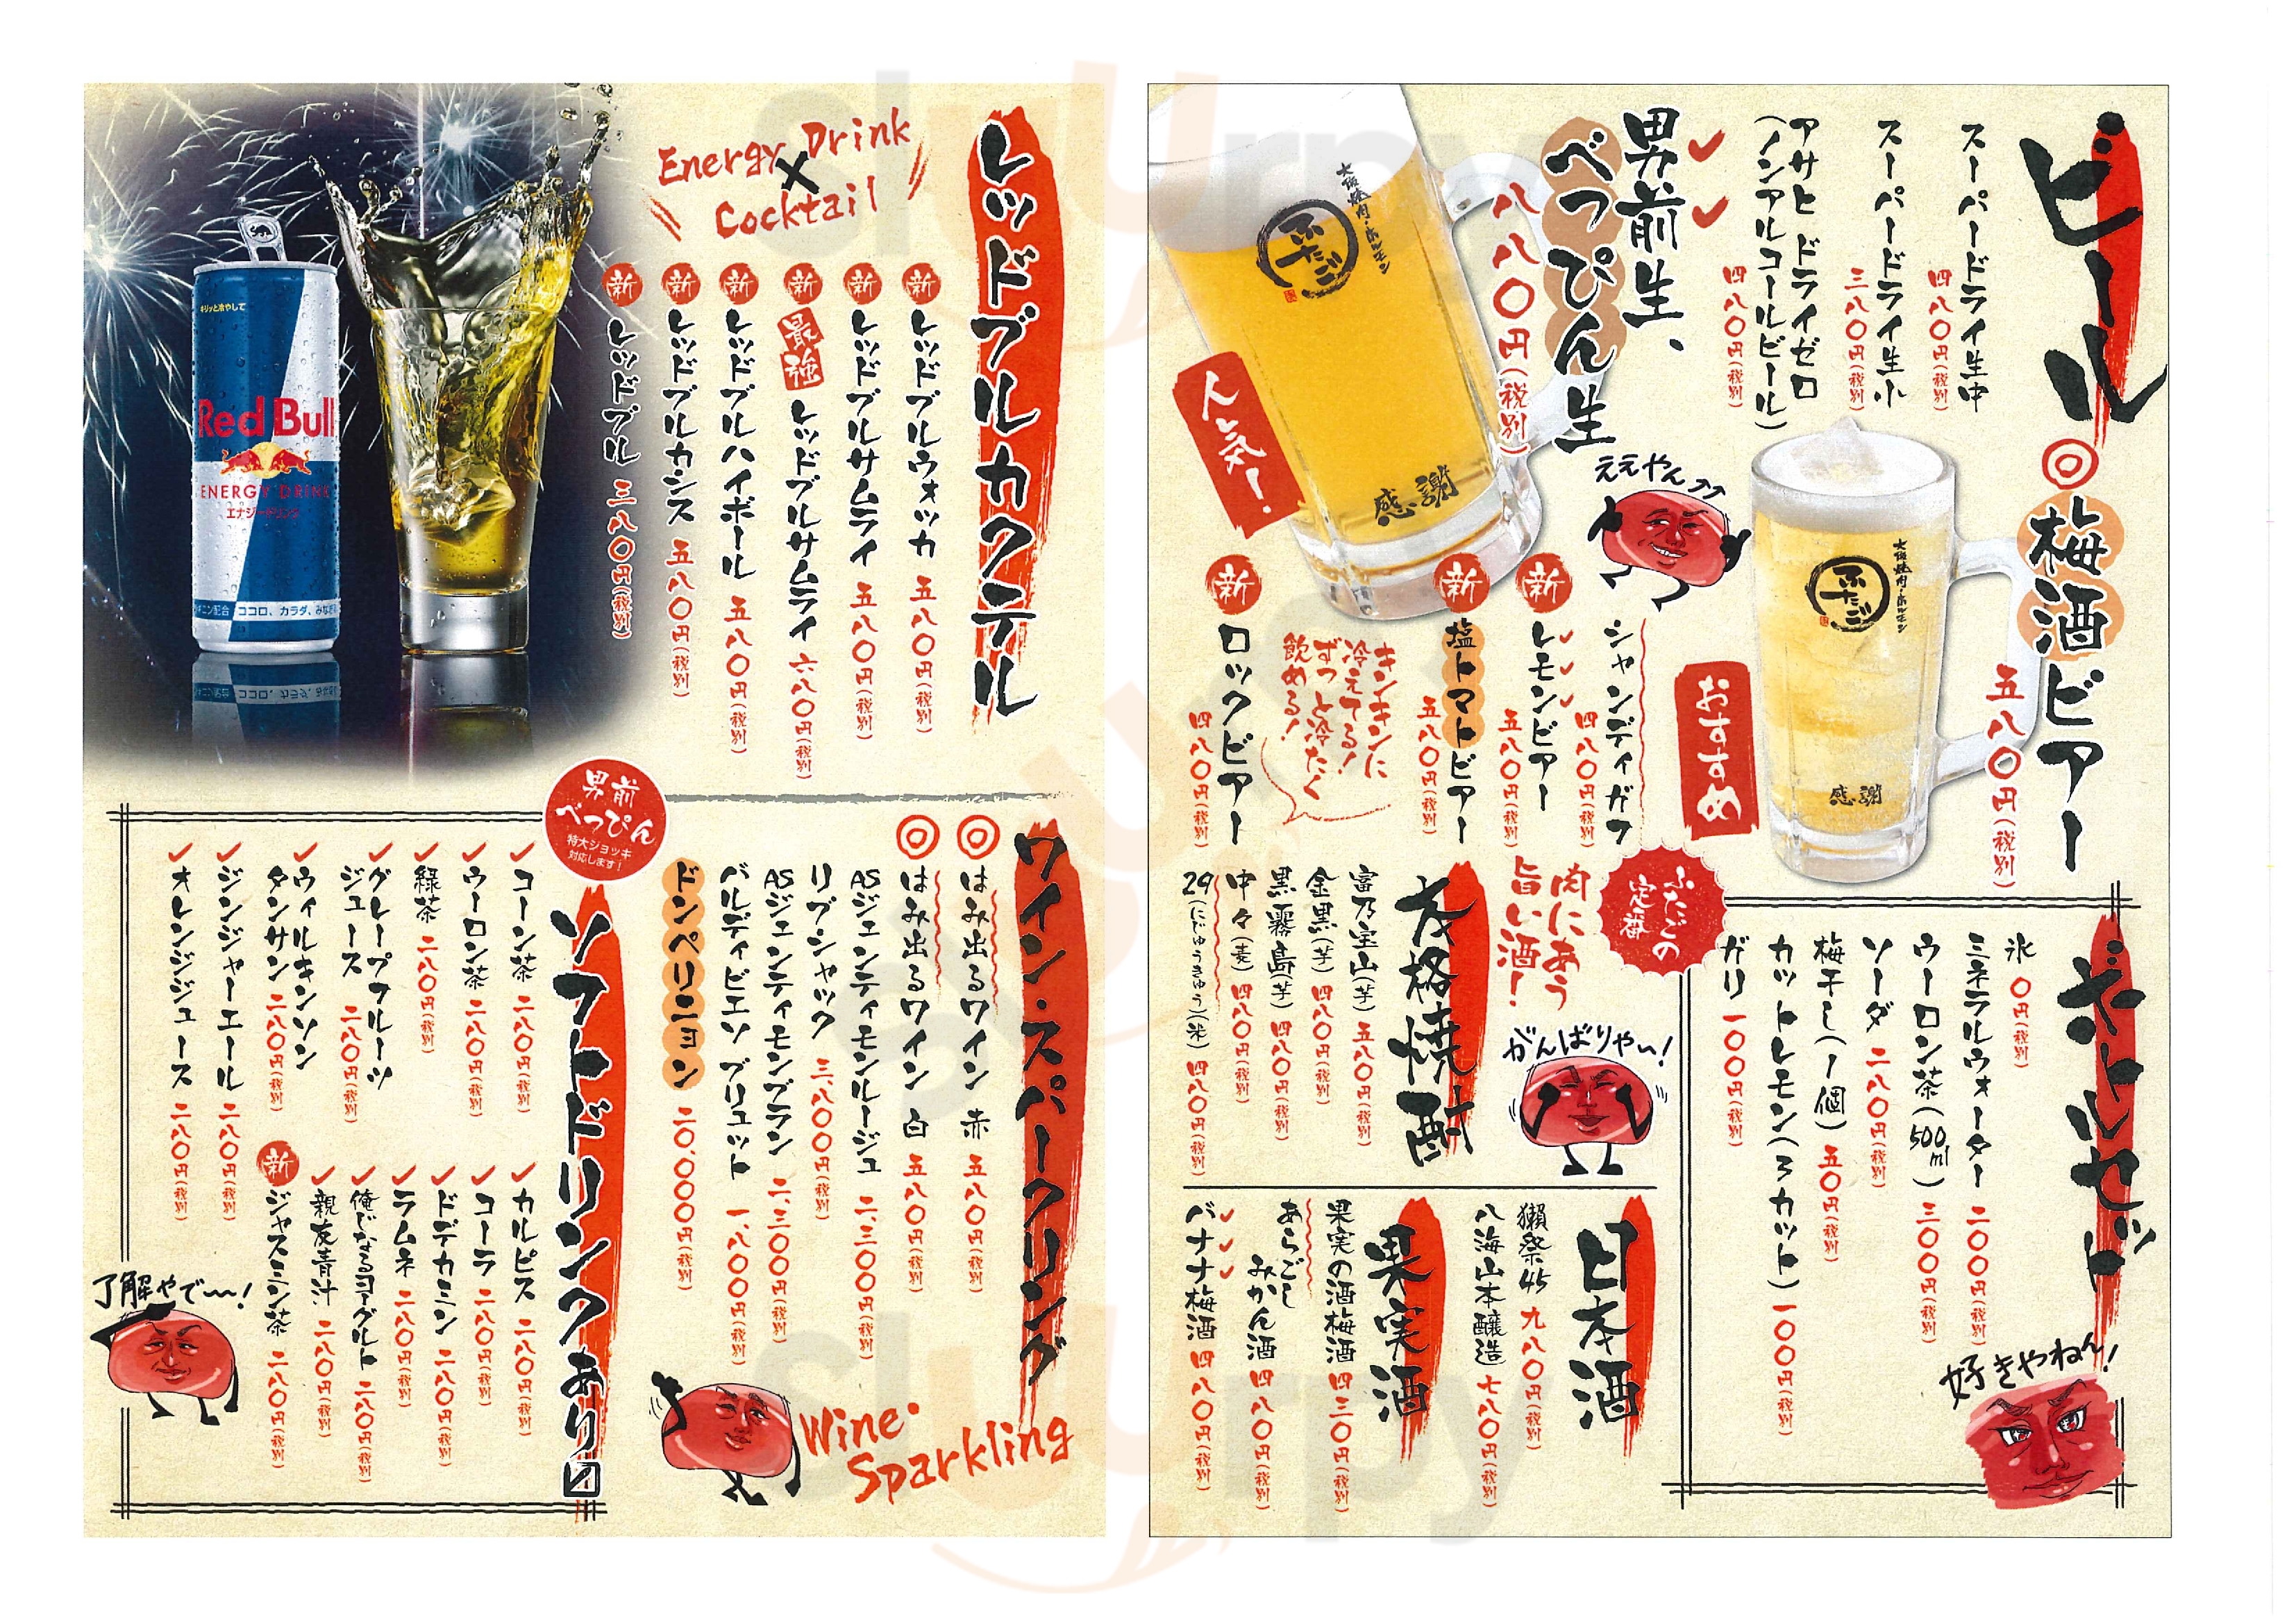 ビール
スーパードライ生中
四八〇円(税別)
スーパードライ生小
三八〇円(税別)
アサヒ ドライゼロ
(ノンアルコールビール)
四八〇円(税別)
男前生、
べっぴん生
八八〇円(税別)
大阪焼肉・ホルモン
ふたご
感謝
人気!
◎梅酒ビアー
五八〇円(税別)
大阪焼肉・ホルモン
ふたご
感謝
おすすめ
ええやん↑↑
シャンディガフ
四八〇円(税別)
新 レモンビアー
五八〇円(税別)
新 塩トマトビアー
五八〇円(税別)
キンキンに
冷えてる!
ずっと冷たく
飲める!
新 ロックビアー
四八〇円(税別)
ボトルセット
氷 〇円(税別)
ミネラルウォーター 二〇〇円(税別)
ウーロン茶(500ml) 三〇〇円(税別)
ソーダ 二八〇円(税別)
梅干し(1個) 五〇円(税別)
カットレモン(3カット) 一〇〇円(税別)
ガリ 一〇〇円(税別)
好きやねん!
ふたごの
定番
肉にあう
旨い酒!
がんばりやぃ!
本格焼酎
富乃宝山(芋) 五八〇円(税別)
金黒(芋) 四八〇円(税別)
黒霧島(芋) 四八〇円(税別)
中々(麦) 四八〇円(税別)
29(にじゅうきゅう)(米) 四八〇円(税別)
日本酒
獺祭45 九八〇円(税別)
八海山本醸造 七八〇円(税別)
果実酒
果実の酒梅酒 四三〇円(税別)
あらごし
みかん酒 四八〇円(税別)
バナナ梅酒 四八〇円(税別)
レッドブルカクテル
Energy Drink
×
Cocktail
新 レッドブルウォッカ 五八〇円(税別)
新 レッドブルサムライ 五八〇円(税別)
新 最強 レッドブルサムライ 六八〇円(税別)
新 レッドブルハイボール 五八〇円(税別)
新 レッドブルカシス 五八〇円(税別)
新 レッドブル 三八〇円(税別)
キリッと冷やして
Red Bull
ENERGY DRINK
エナジードリンク
ココロ、カラダ、みなぎ
ワイン・スパークリング
◎はみ出るワイン 赤 五八〇円(税別)
◎はみ出るワイン 白 五八〇円(税別)
ASジェンティモンルージュ 二、三〇〇円(税別)
リブシャック 三、八〇〇円(税別)
ASジェンティモンブラン 二、三〇〇円(税別)
バルディビエソ ブリュット 一、八〇〇円(税別)
ドンペリニョン 二〇、〇〇〇円(税別)
Wine・
Sparkling
男前
べっぴん
特大ジョッキ
対応します!
ソフトドリンクあり〼
コーン茶 二八〇円(税別)
ウーロン茶 二八〇円(税別)
緑茶 二八〇円(税別)
グレープフルーツ
ジュース 二八〇円(税別)
ウィルキンソン
タンサン 二八〇円(税別)
ジンジャーエール 二八〇円(税別)
オレンジジュース 二八〇円(税別)
カルピス 二八〇円(税別)
コーラ 二八〇円(税別)
ドデカミン 二八〇円(税別)
ラムネ 二八〇円(税別)
俺じなるヨーグルト 二八〇円(税別)
親友青汁 二八〇円(税別)
新 ジャスミン茶 二八〇円(税別)
了解やで〜!
slurpy
slurpy